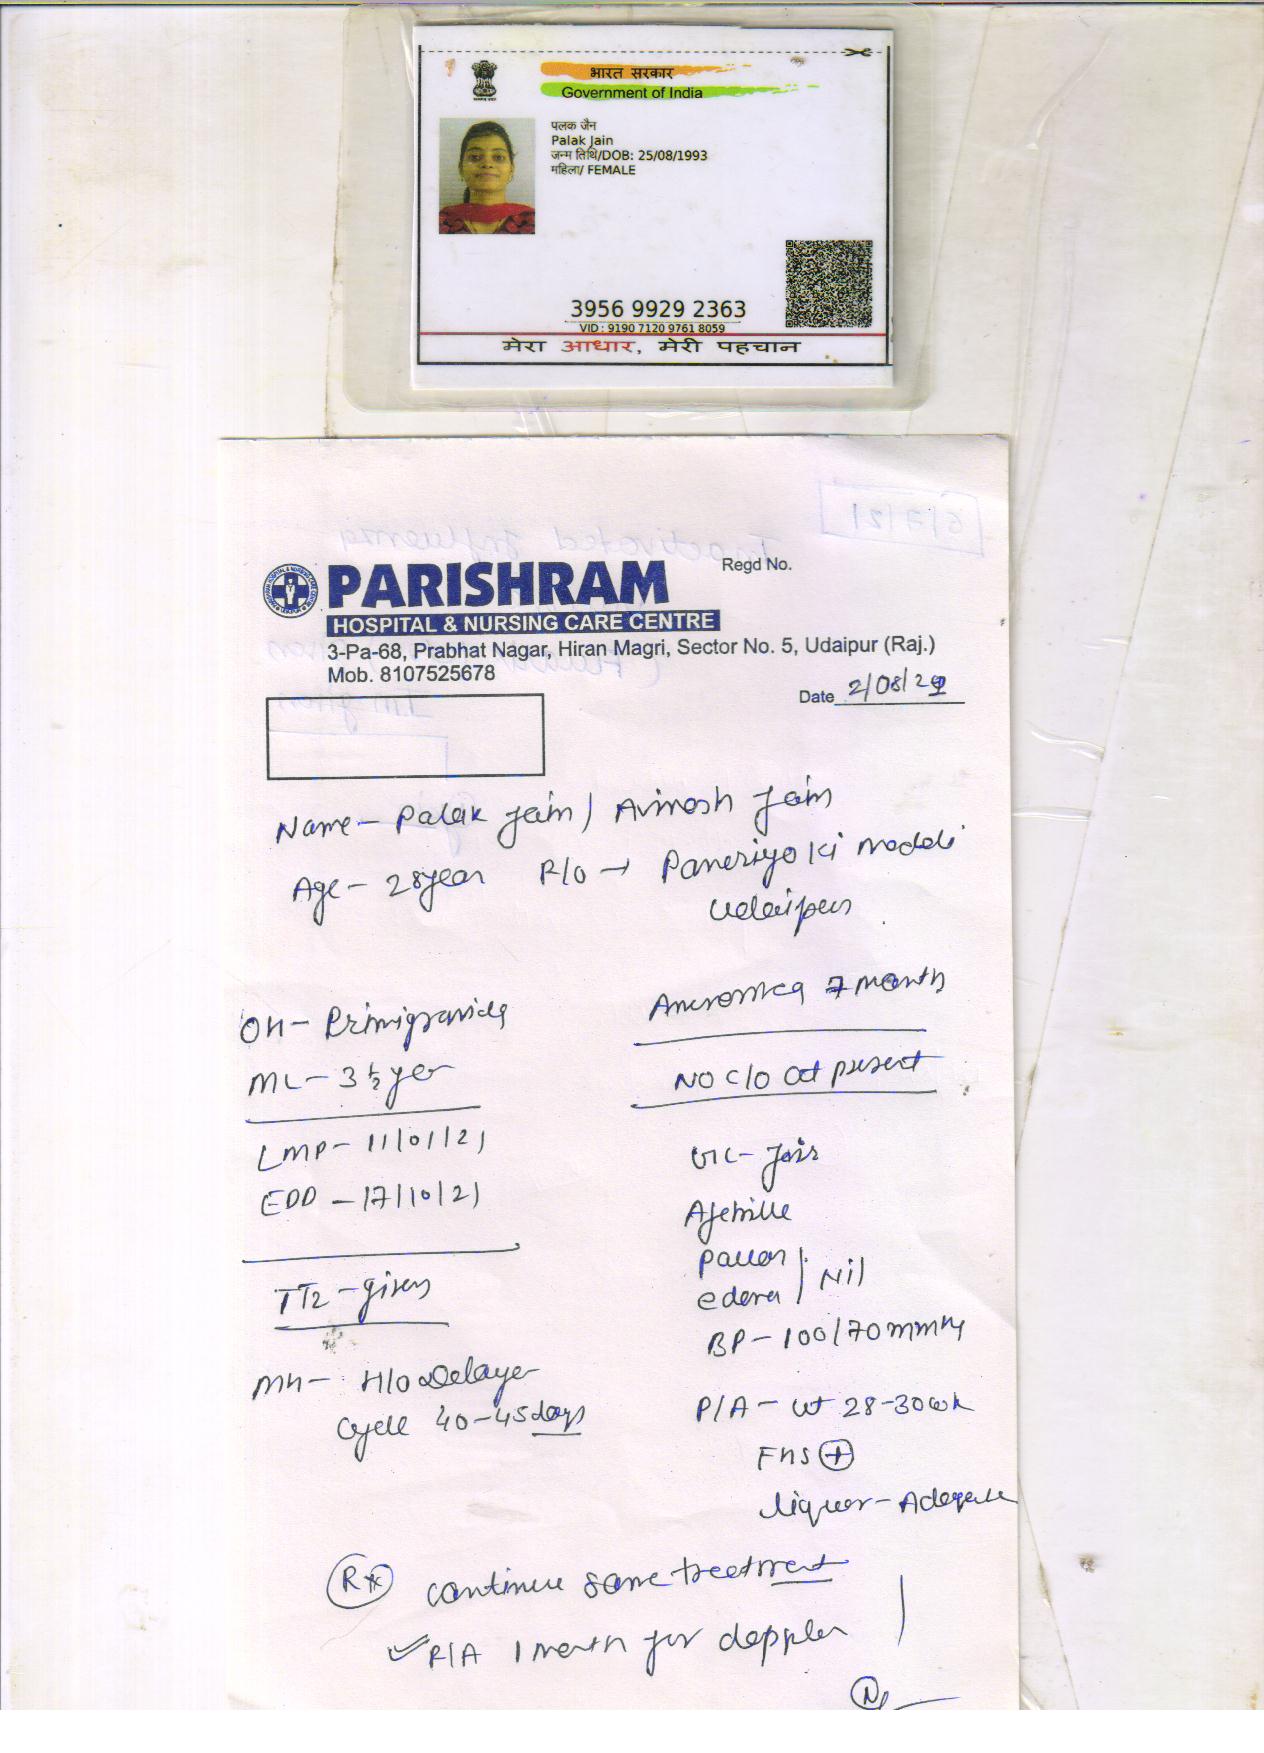 भारत सरकार
Government of India
पलक जैन
Palak Jain
जन्म तिथि/DOB: 25/08/1993
महिला/ FEMALE
3956 9929 2363
VID : 9190 7120 9761 8059
मेरा आधार, मेरी पहचान
6/7/21
Inactivated Influenza
PARISHRAM
Regd No.
HOSPITAL & NURSING CARE CENTRE
3-Pa-68, Prabhat Nagar, Hiran Magri, Sector No. 5, Udaipur (Raj.)
Mob. 8107525678
Date 2/08/21
Name - Palak Jain / Avinash Jain
Age - 28 year R/O → Paneriyo ki maddi
Udaipur
OH - Primigravida
7 month
ML - 3 1/2 yer
NO C/O at present
LMP - 11/01/21
EDD - 17/10/21
G/C - fair
Afebrile
TT2 - given
pallor
edema Nil
BP - 100/70 mmHg
MH - H/O Delayed
cycle 40-45 days
P/A - ut 28-30 wk
FHS +
liquor - Adequate
Rx continue same treatment
R/A 1 month for doppler